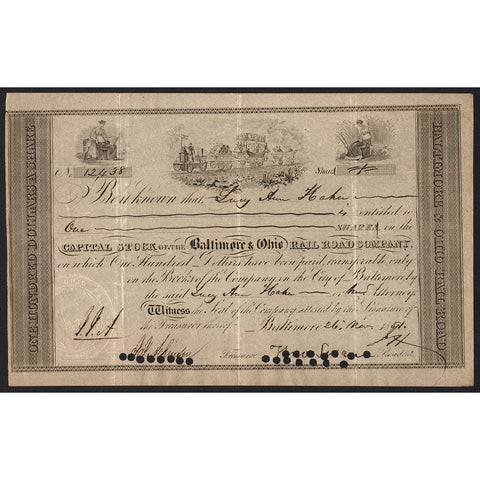 ONE HUNDRED DOLLARS A SHARE
No. 12438
Share
Be it known that, Lucy Ann Haken
is entitled to
One SHARES, on the
CAPITAL STOCK OF THE Baltimore & Ohio RAIL ROAD COMPANY,
on which One Hundred Dollars have been paid, transferable only
on the Books of the Company, in the City of Baltimore, by
the said Lucy Ann Haken or Attorney.
Witness the Seal of the Company attested by the Signature of
the Treasurer thereof Baltimore 26
Treasurer President
BALTIMORE & OHIO RAIL ROAD